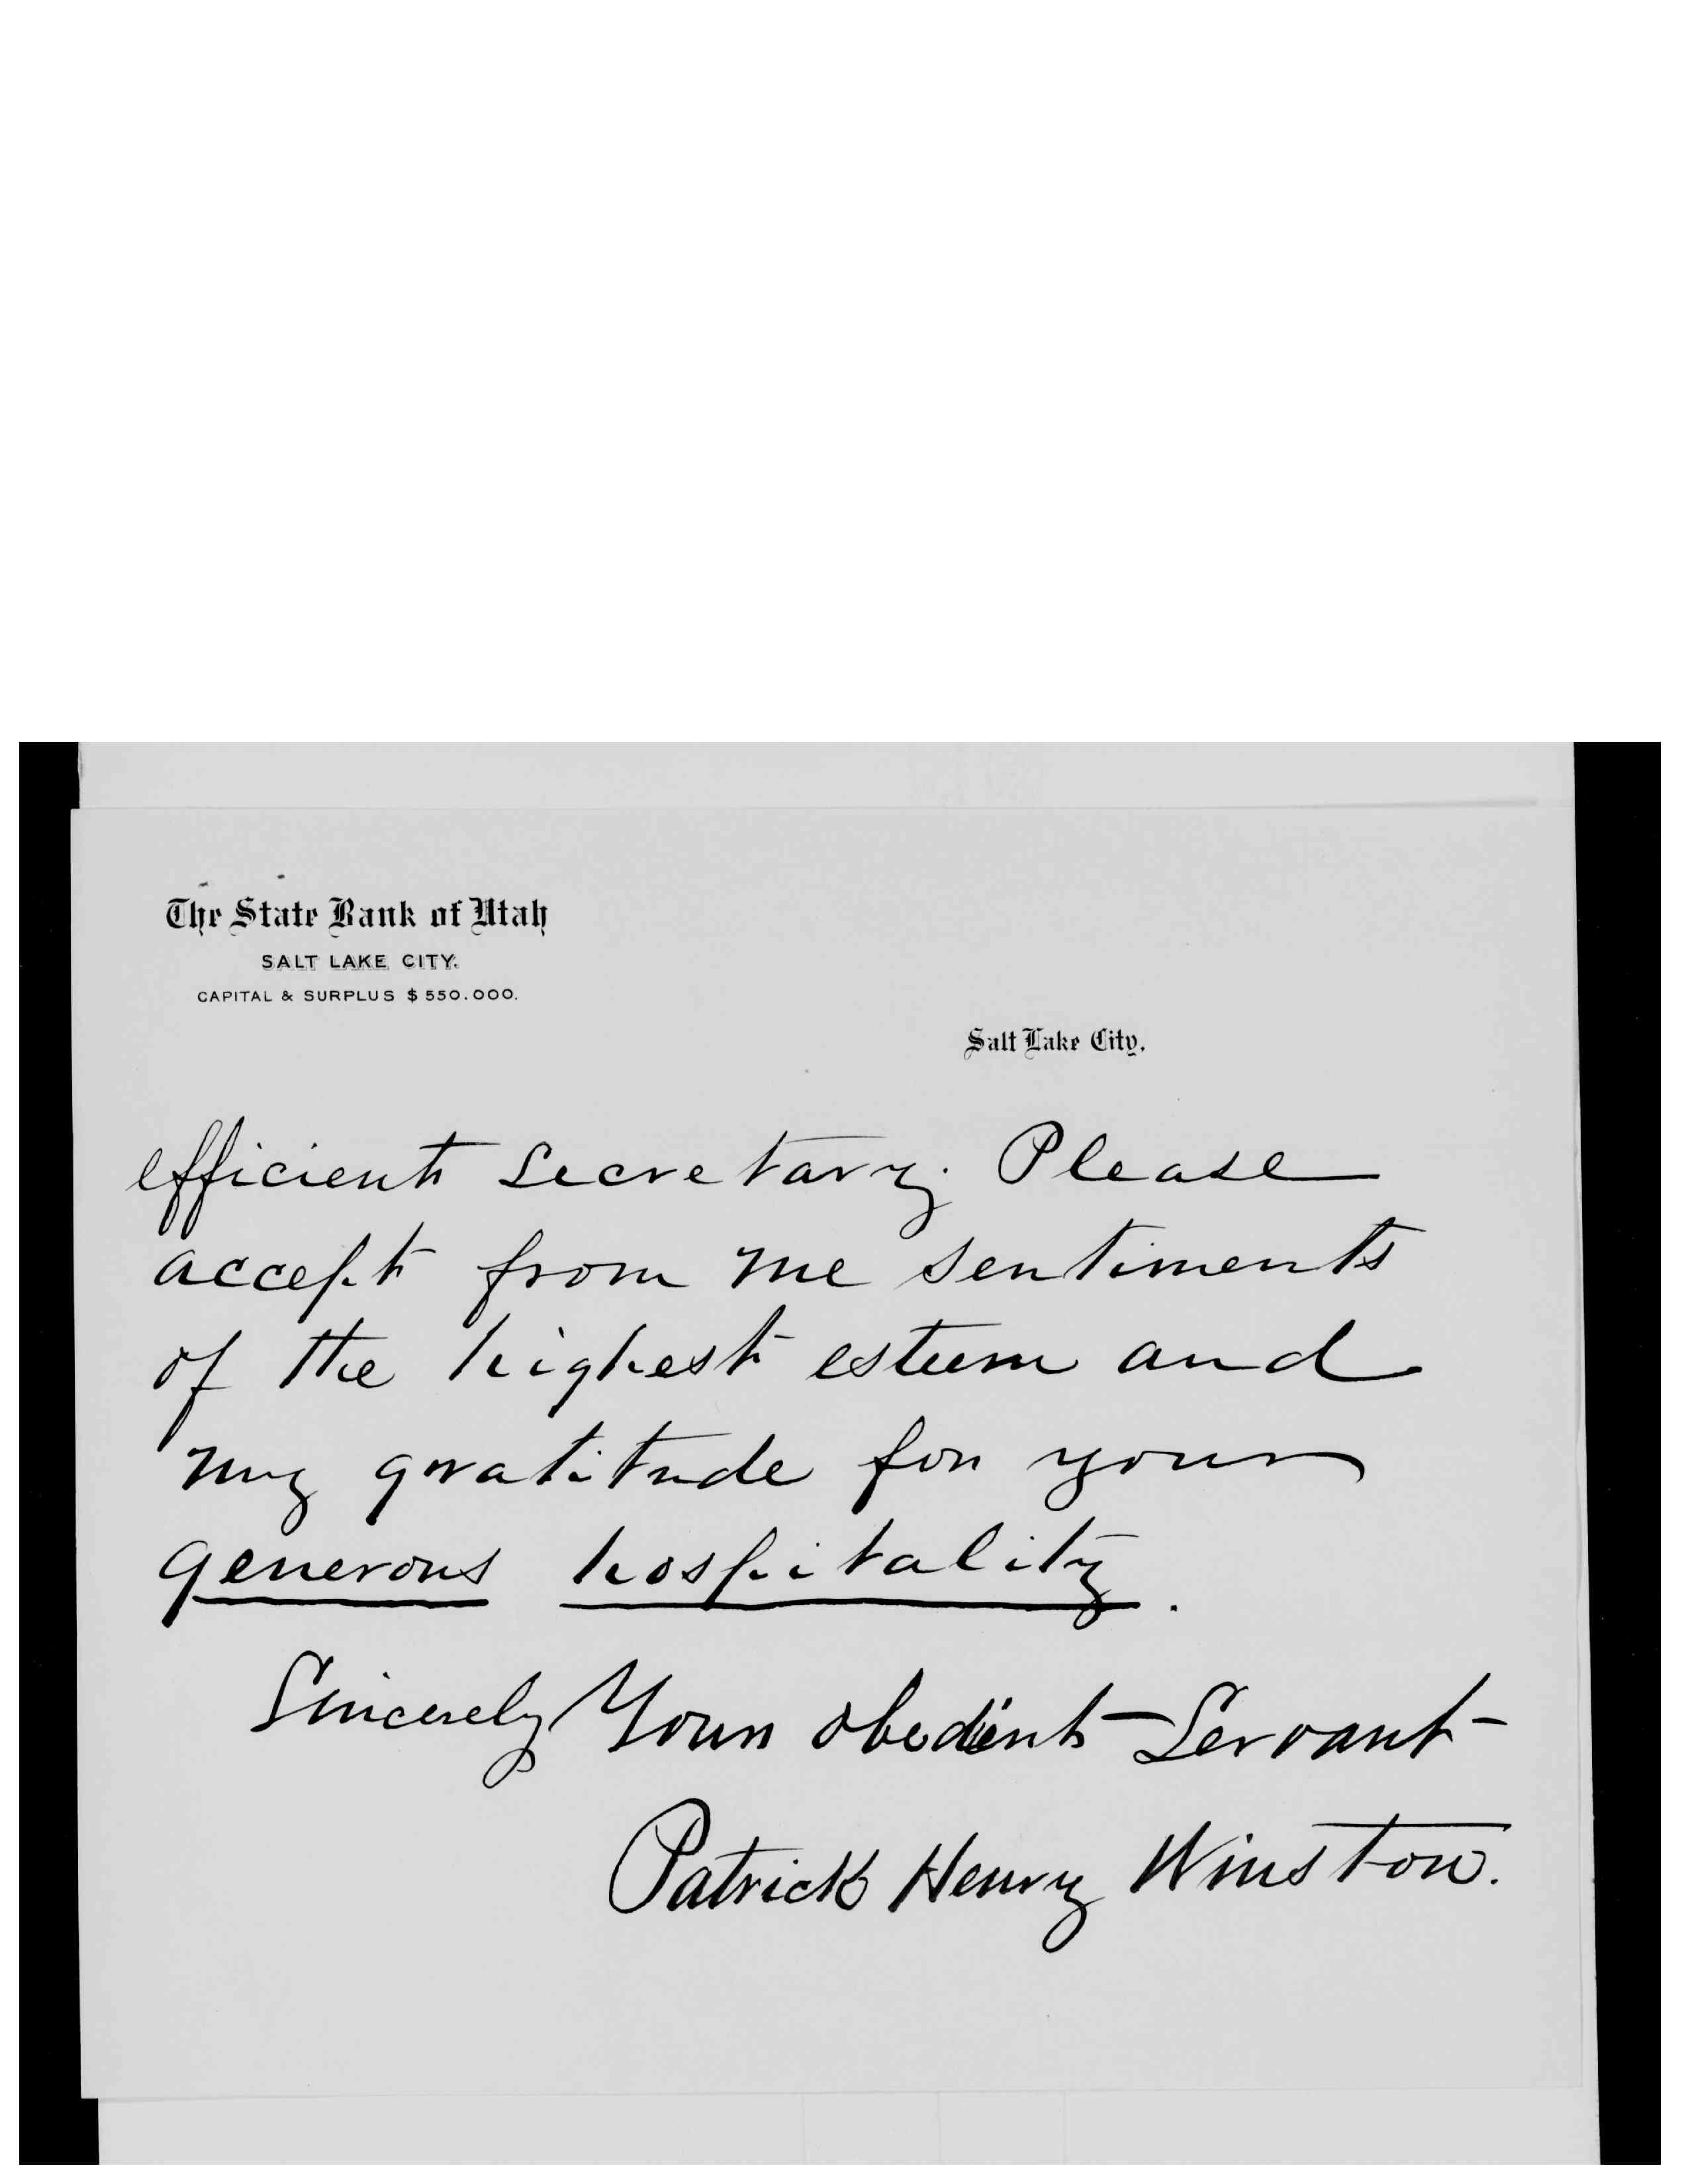 The State Bank of Utah
SALT LAKE CITY.
CAPITAL & SURPLUS $550.000.
Salt Lake City,
efficient Secretary. Please
accept from me sentiments
of the highest esteem and
my gratitude for your
generous hospitality.
Sincerely Your obedient Servant
Patrick Henry Winston.